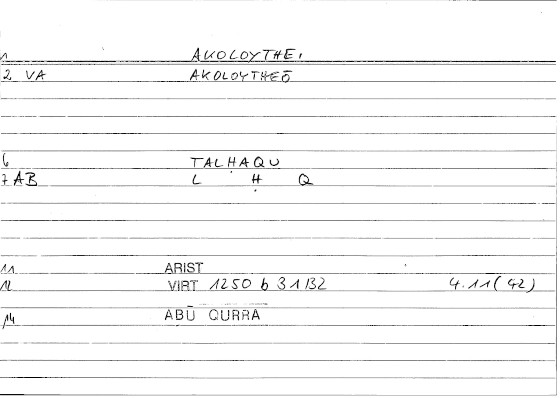 1 AKOLOYTHEI
2 VA AKOLOYTHEŌ
6 TALḤAQU
7 AB L Ḥ Q
11 ARIST
12 VIRT 1250 b 31/32 4.11(42)
14 ABŪ QURRA